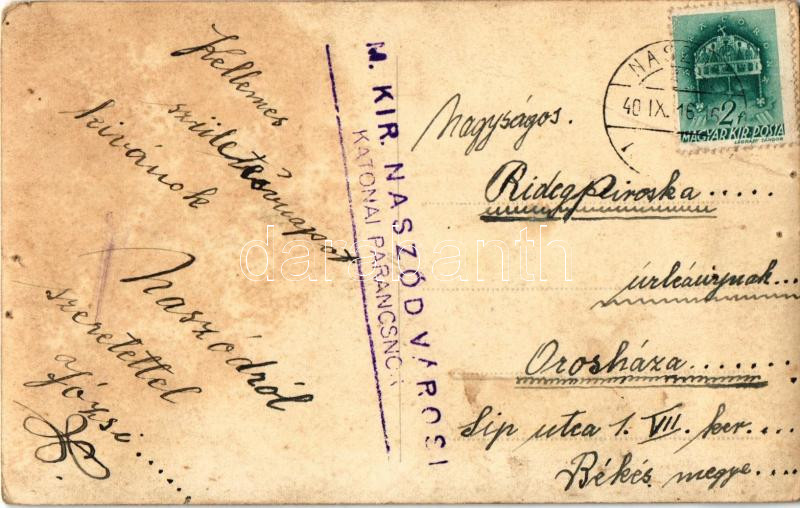 Kellemes
születésnapot
kívánok
Naszódról
szeretettel
Józsi.....
M. KIR. NASZÓD VÁROSI
KATONAI PARANCSNOK
NASZ
40 IX. 16
1
2f
MAGYAR KIR. POSTA
LÉGRÁDY SÁNDOR
Nagyságos.
Rideg Piroska.....
úrleánynak...
Orosháza......
Síp utca 1. VII. ker....
Békés megye....
darabanth